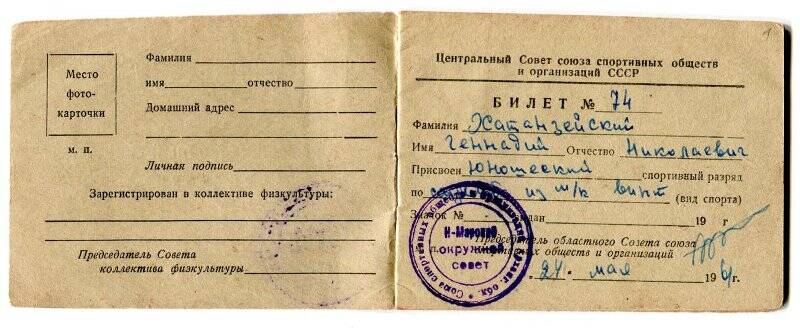 Место
фото-
карточки
м. п.
Фамилия
имя отчество
Домашний адрес
Личная подпись
Зарегистрирован в коллективе физкультуры:
Председатель Совета
коллектива физкультуры
1
Центральный Совет союза спортивных обществ
и организаций СССР
БИЛЕТ № 74
Фамилия Хатанзейский
Имя Геннадий Отчество Николаевич
Присвоен Юношеский спортивный разряд
по из м/к винт (вид спорта)
Значок № - 19 г
Председатель областного Совета союза
обществ и организаций
24 мая 196 г.
Союз спортивных обществ и организаций
обл.
Н-Марский
окружной
совет